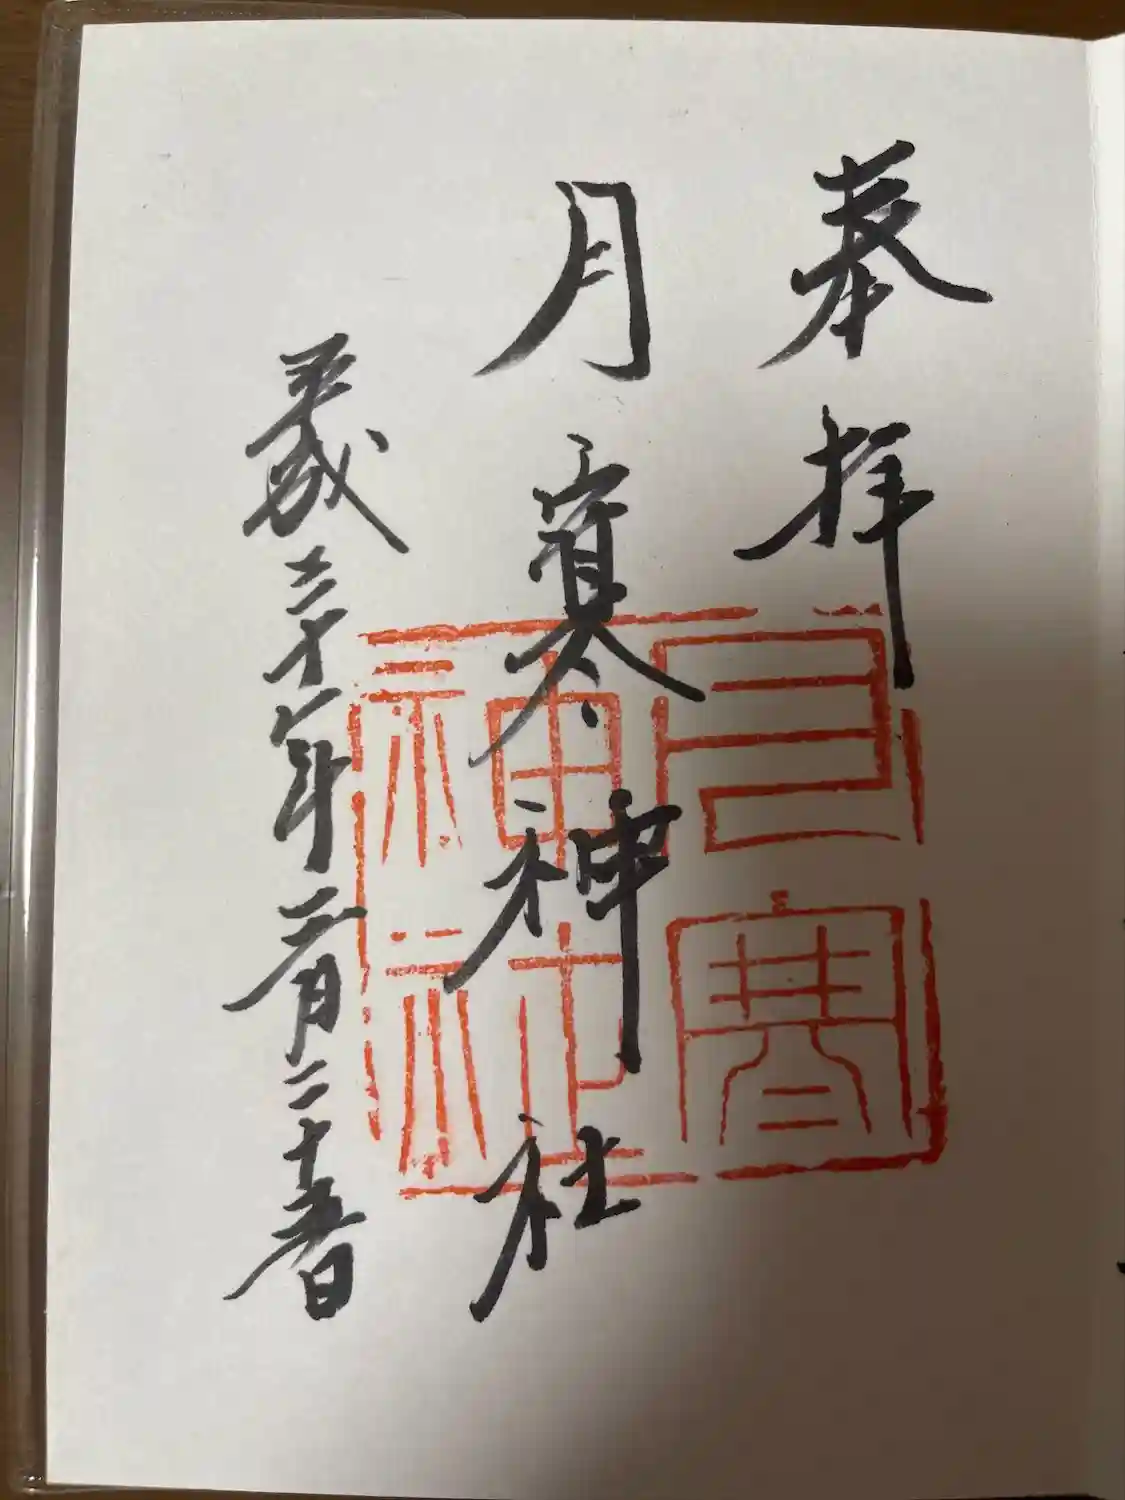 奉拝
月寒神社
平成三十年三月二十五日
月寒
神社